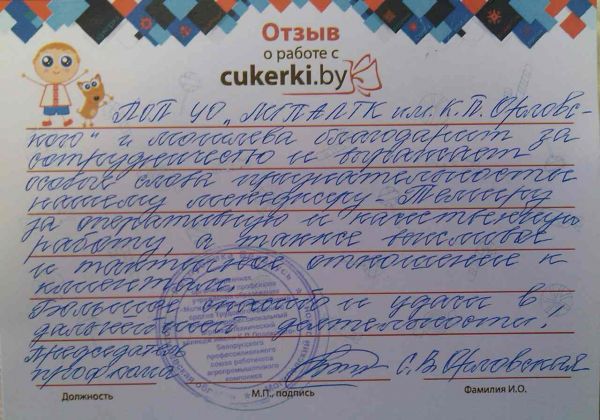 Отзыв
о работе с
cukerki.by
ППО УО "МГПАЛТК им. К.П. Орловс-
кого" г. Могилева благодарит за
сотрудничество и выражает
особые слова признательности
нашему менеджеру - Тимуру
за оперативную и качественную
работу, а также вежливое
и тактичное отношение к
клиентам.
Большое спасибо и удачи в
дальнейшей деятельности!
Председатель
профкома С.В. Орловская
Должность М.П., подпись Фамилия И.О.